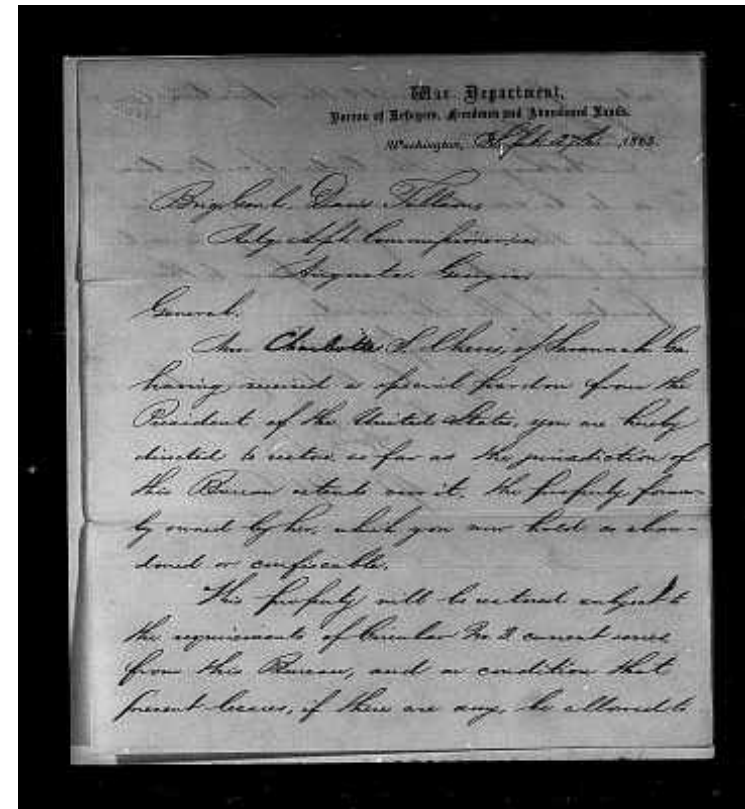 War Department,
Bureau of Refugees, Freedmen and Abandoned Lands.
Washington, Sept. 27th, 1865.
Brig. Genl. Davis Tillson,
Actg. Asst. Commissioner
Augusta Georgia
General.
Mrs. Charlotte S. of Savannah Ga.
having received a special pardon from the
President of the United States, you are hereby
directed to restore so far as the jurisdiction of
this Bureau extends over it, the property former-
ly owned by her, which you now hold as aban-
doned or confiscable.
This property will be restored subject to
the requirements of Circular No. current series
from this Bureau, and on condition that
present lessees, if there are any, be allowed to